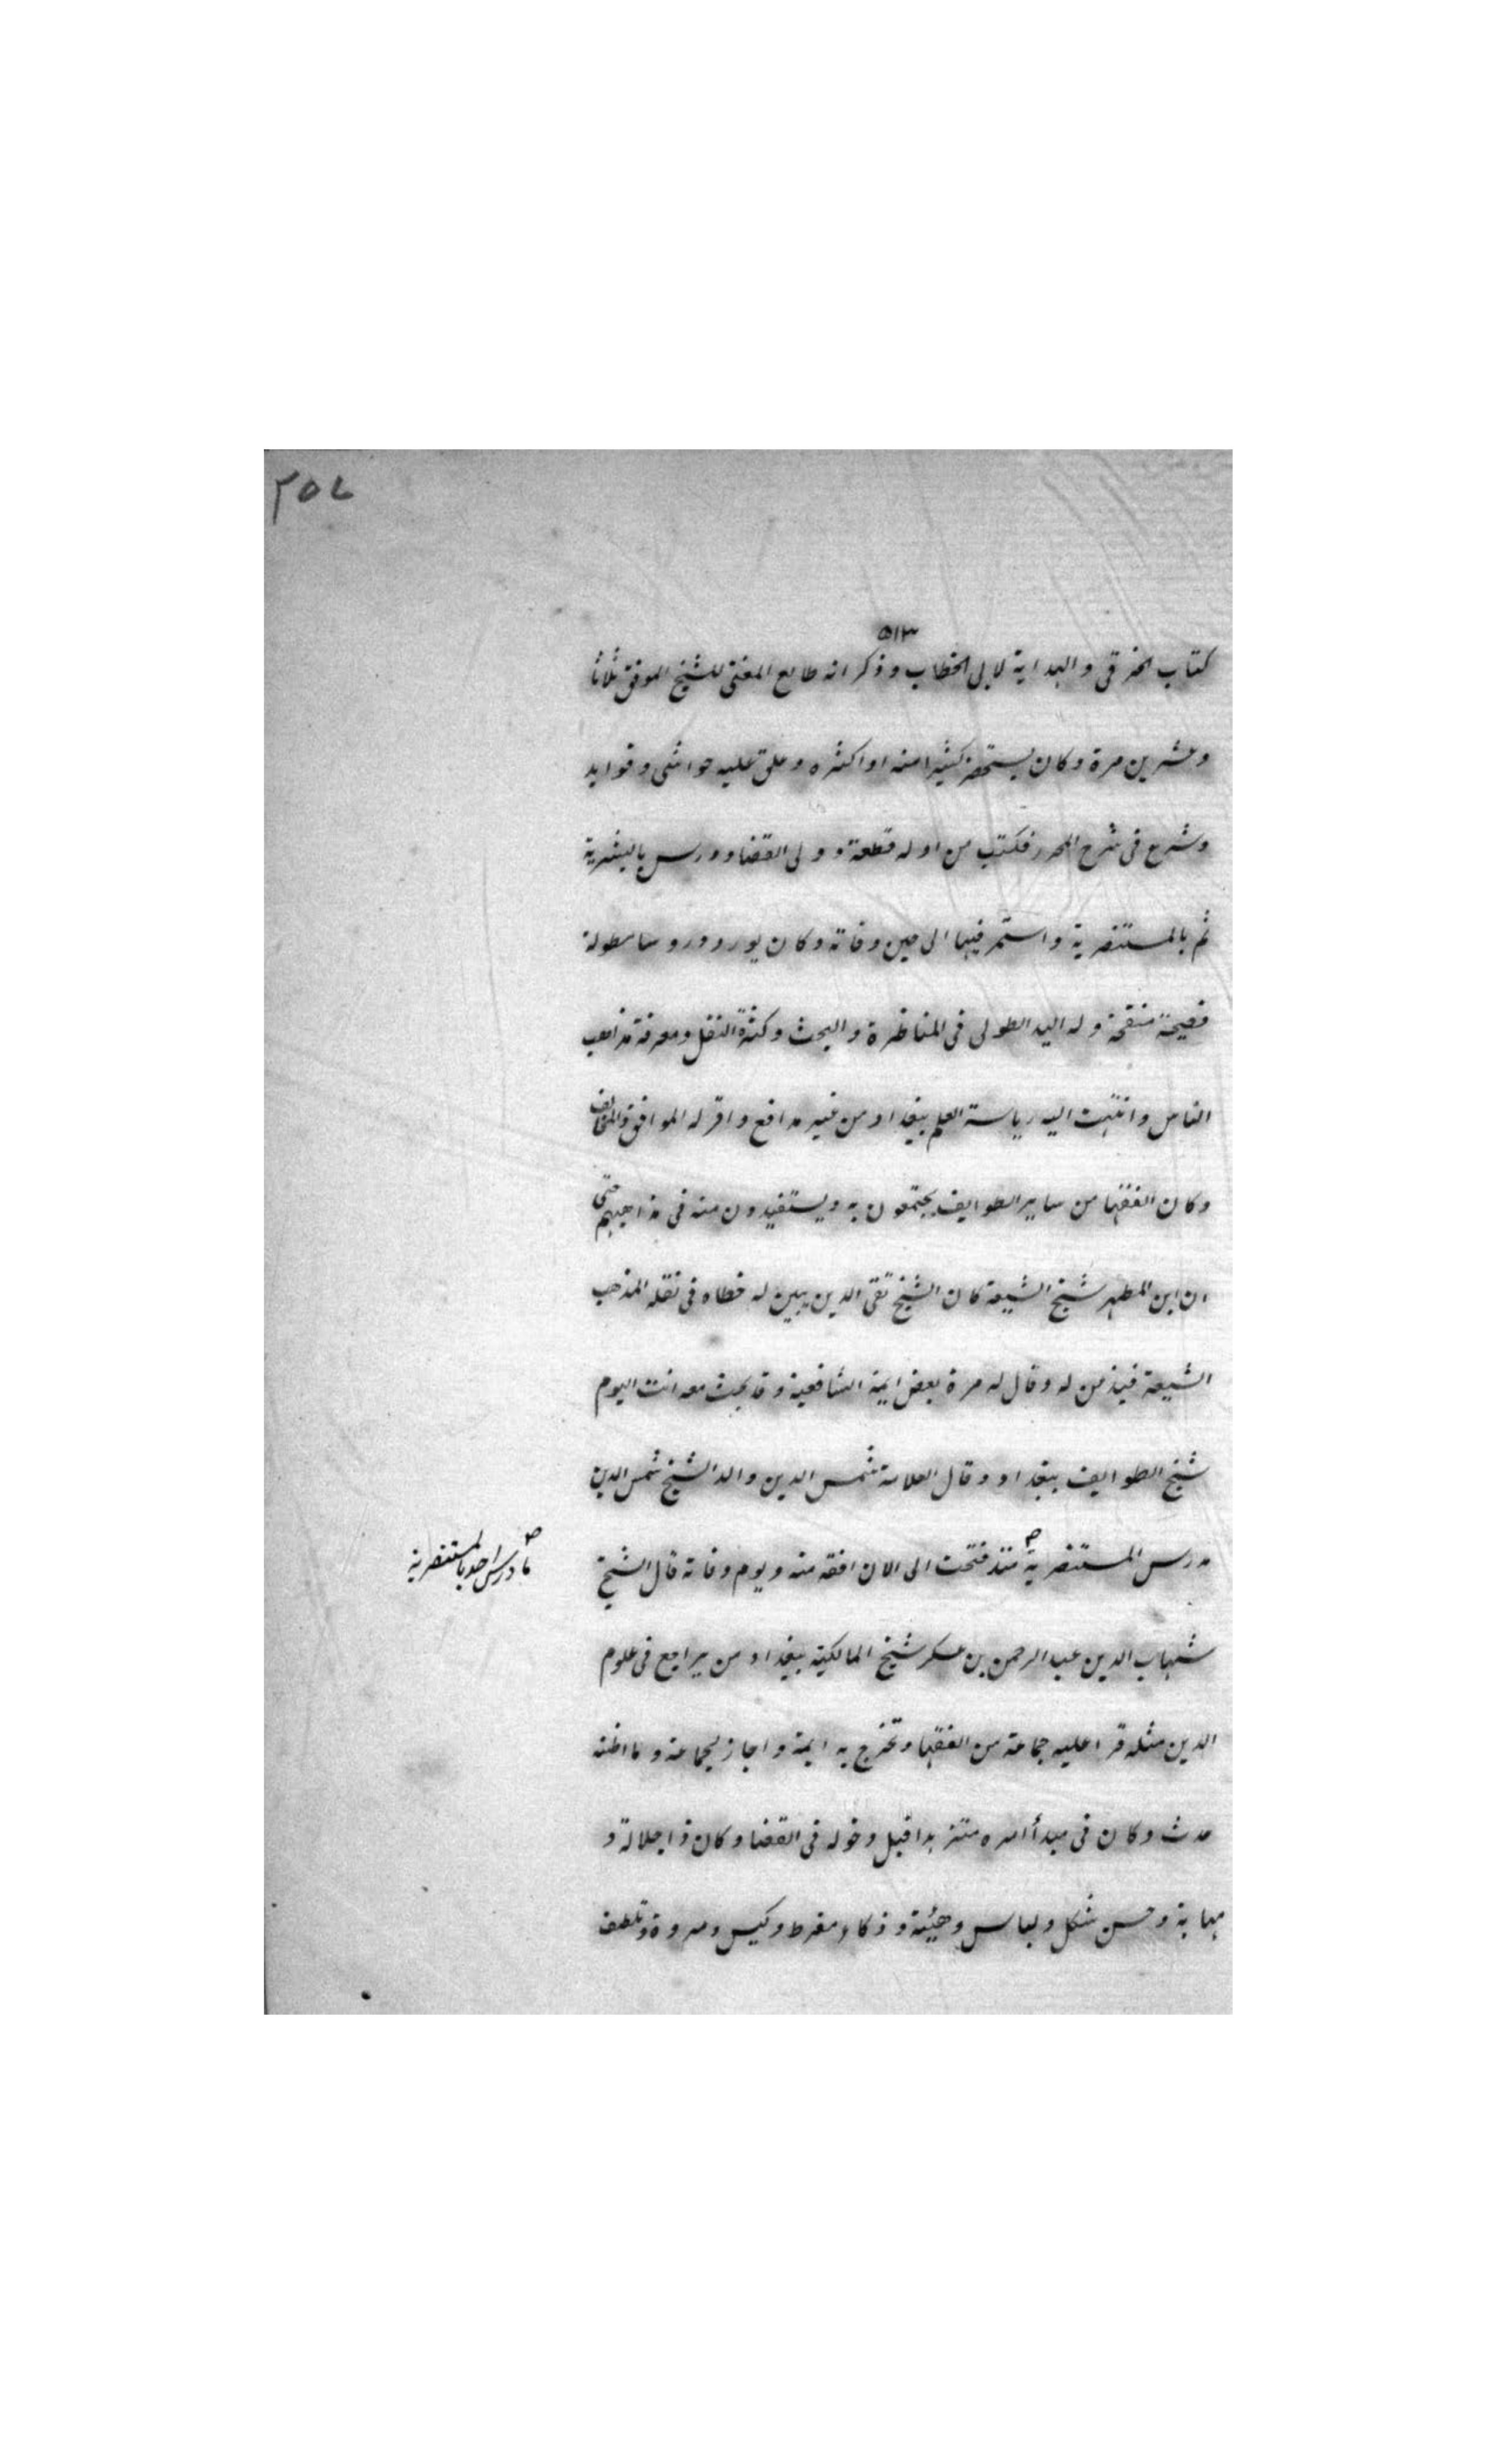 ٣٥٨
٥١٣
كتاب الخرقي والهداية لابى الخطاب وذكر انه طالع المغنى للشيخ الموفق ثلاثا
وعشرين مرة وكان يستحضر كثيرا منه او اكثره وعلق عليه حواشى وفوايد
وشرع فى شرح المحرر فكتب من اوله قطعة وولى القضا ودرس بالبشرية
ثم بالمستنصرية واستمر فيها الى حين وفاته وكان يورد دروسا مطولة
فصيحة منقحة وله اليد الطولى فى المناظرة والبحث وكثرة النقل ومعرفة مذاهب
الناس وانتهت اليه رياسة العلم ببغداد من غير مدافع واقر له الموافق والمخالف
وكان الفقها من ساير الطوايف يجتمعون به ويستفيدون منه فى مذاهبهم حتى
ان ابن المطهر شيخ الشيعة كان الشيخ تقى الدين يبين له خطاه فى نقله المذهب
الشيعة فيذعن له وقال له مرة بعض ايمة الشافعية وقد بحث معه انت اليوم
شيخ الطوايف ببغداد وقال العلامة شمس الدين والد الشيخ شمس الدين
مدرس المستنصرية منذ فتحت الى الان افقه منه ويوم وفاته قال الشيخ
ما درس احد بالمستنصرية
شهاب الدين عبد الرحمن بن عسكر شيخ المالكية ببغداد من يراجع فى علوم
الدين مثله قرا عليه جماعة من الفقها وتخرج به ايمة واجاز لجماعة وما اظنه
حدث وكان فى مبدأ امره متزهدا قبل دخوله فى القضا وكان ذا جلالة و
مهابة وحسن شكل ولباس وهيئة وذكاء مفرط وكيس ومروة وتلطف